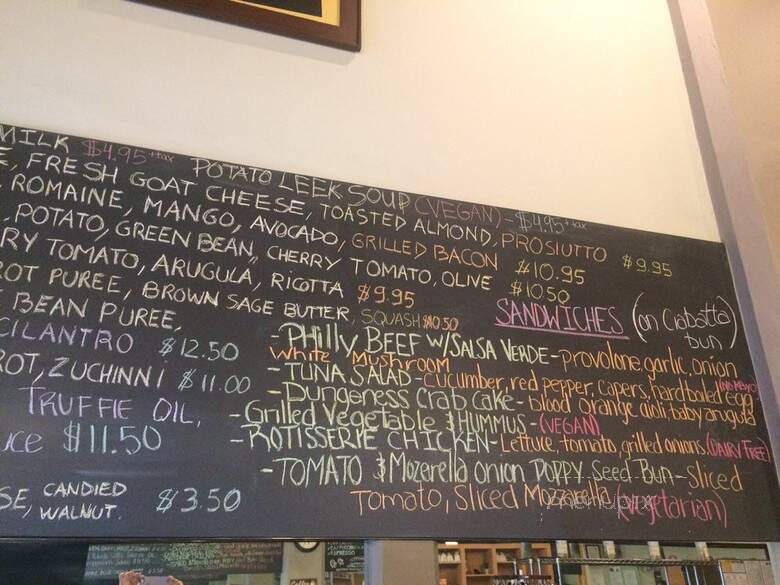 MILK $4.95 +tax POTATO LEEK SOUP (VEGAN) - $4.95 + tax
E, FRESH GOAT CHEESE, TOASTED ALMOND, PROSIUTTO $9.95
ROMAINE, MANGO, AVOCADO, GRILLED BACON $10.95
, POTATO, GREEN BEAN, CHERRY TOMATO, OLIVE $10.50
RY TOMATO, ARUGULA, RICOTTA $9.95
ROT PUREE, BROWN SAGE BUTTER, SQUASH $10.50
BEAN PUREE,
CILANTRO $12.50
ROT, ZUCHINNI $11.00
TRUFFIE OIL,
uce $11.50
SE, CANDIED WALNUT. $3.50
SANDWICHES (on Ciabatta bun)
- PHILLY BEEF W/SALSA VERDE - provolone, garlic, onion
White Mushroom
- TUNA SALAD - cucumber, red pepper, capers, hard boiled egg (NO MAYO)
- Dungeness Crab Cake - blood orange aioli, baby arugula
- Grilled Vegetable & HUMMUS - (VEGAN)
- ROTISSERIE CHICKEN - Lettuce, tomato, grilled onions. (DAIRY FREE)
- TOMATO & Mozerella onion POPPY Seed Bun - Sliced
Tomato, Sliced Mozzarella (Vegetarian)